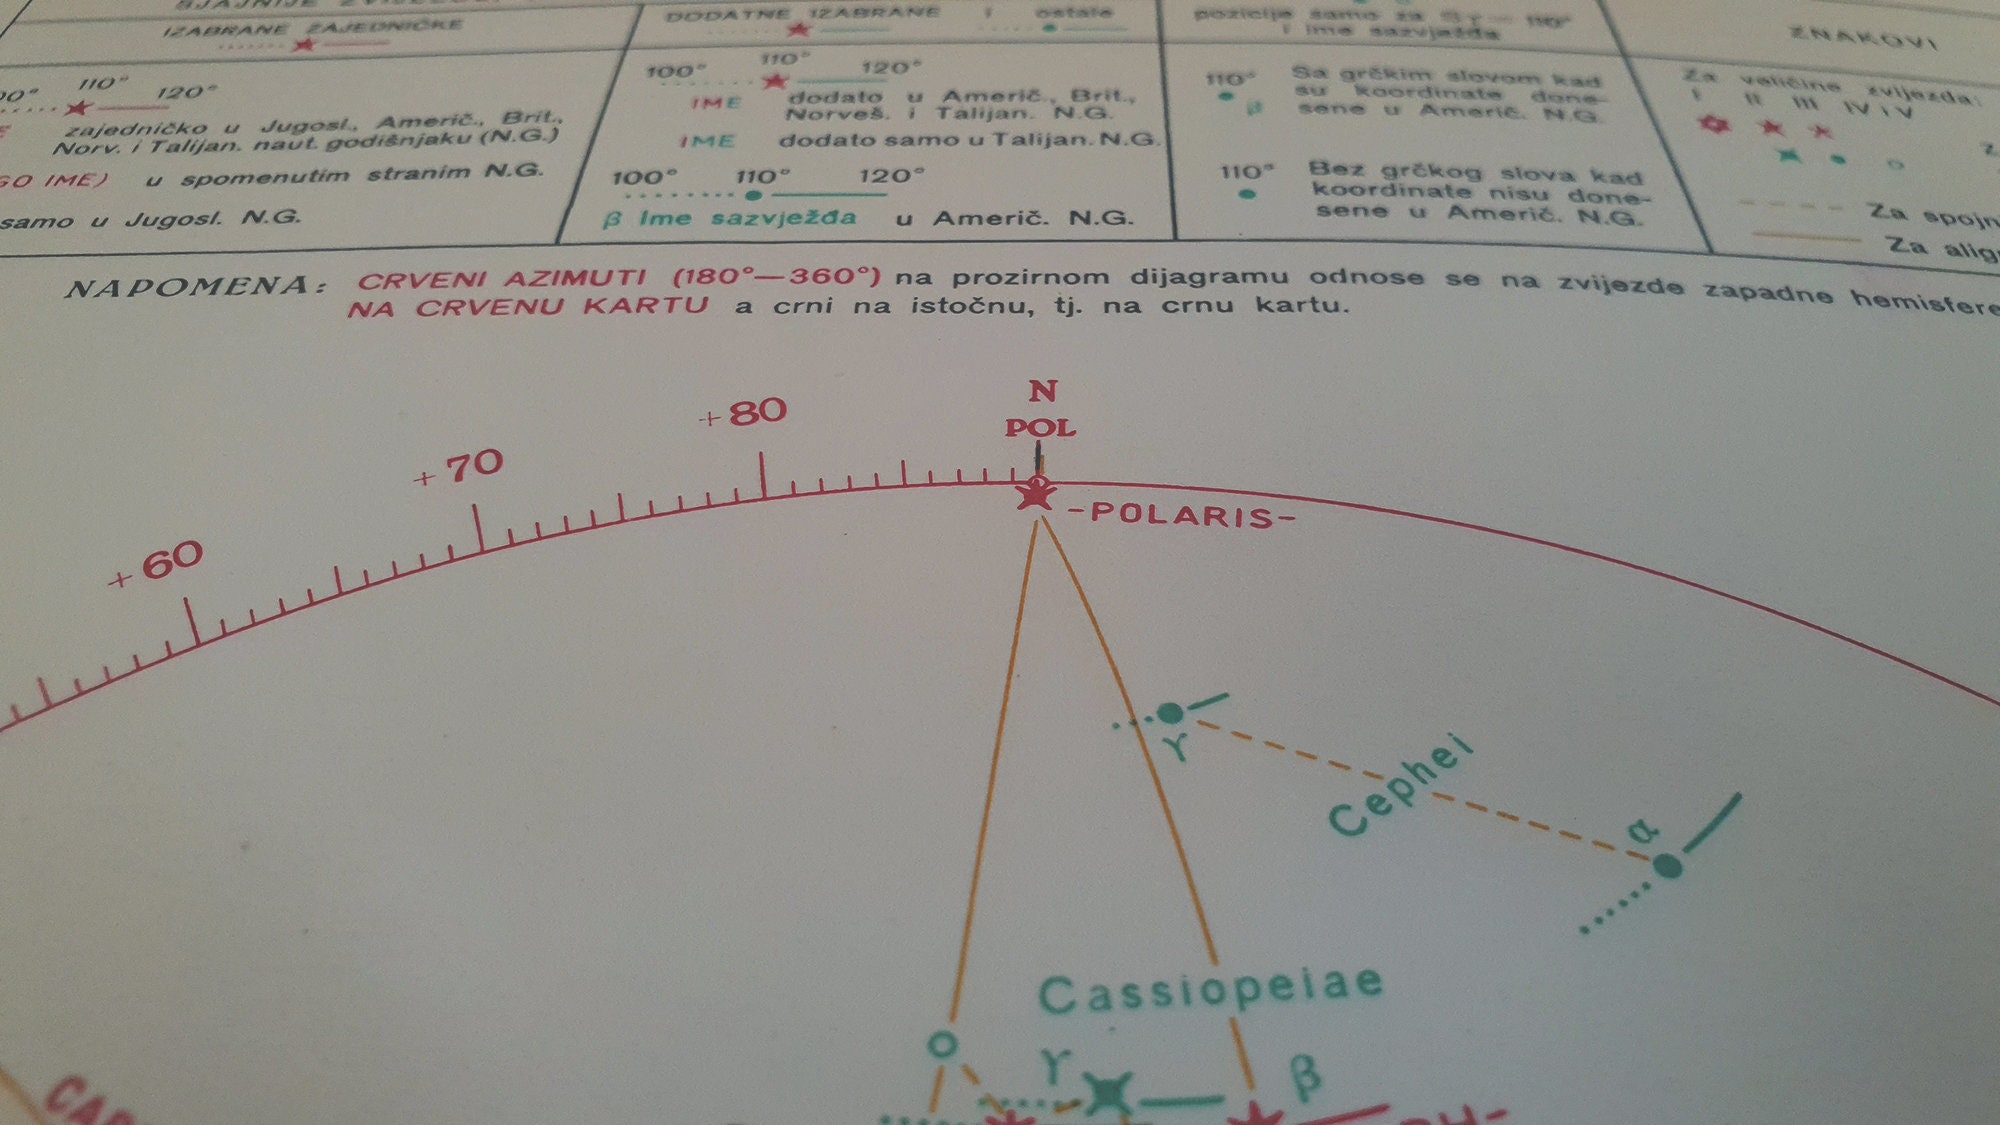 IZABRANE ZAJEDNIČKE
DODATNE IZABRANE i ostale
pozicije samo za
i ime sazvježđa
ZNAKOVI
110° 120°
zajedničko u Jugosl., Americ., Brit.,
Norv. i Talijan. naut. godišnjaku (N.G.)
GO IME) u spomenutim stranim N.G.
samo u Jugosl. N.G.
100° 110° 120°
IME dodato u Americ., Brit.,
Norveš. i Talijan. N.G.
IME dodato samo u Talijan. N.G.
100° 110° 120°
β Ime sazvježđa u Americ. N.G.
110° Sa grčkim slovom kad
su koordinate done-
β sene u Americ. N.G.
110° Bez grčkog slova kad
koordinate nisu done-
sene u Americ. N.G.
Za veličine zvijezda:
I II III IV i V
Za spojn
Za alig
NAPOMENA: CRVENI AZIMUTI (180°—360°) na prozirnom dijagramu odnose se na zvijezde zapadne hemisfere
NA CRVENU KARTU a crni na istočnu, tj. na crnu kartu.
N
POL
+80
+70
+60
-POLARIS-
γ
Cephei
α
Cassiopeiae
γ
β